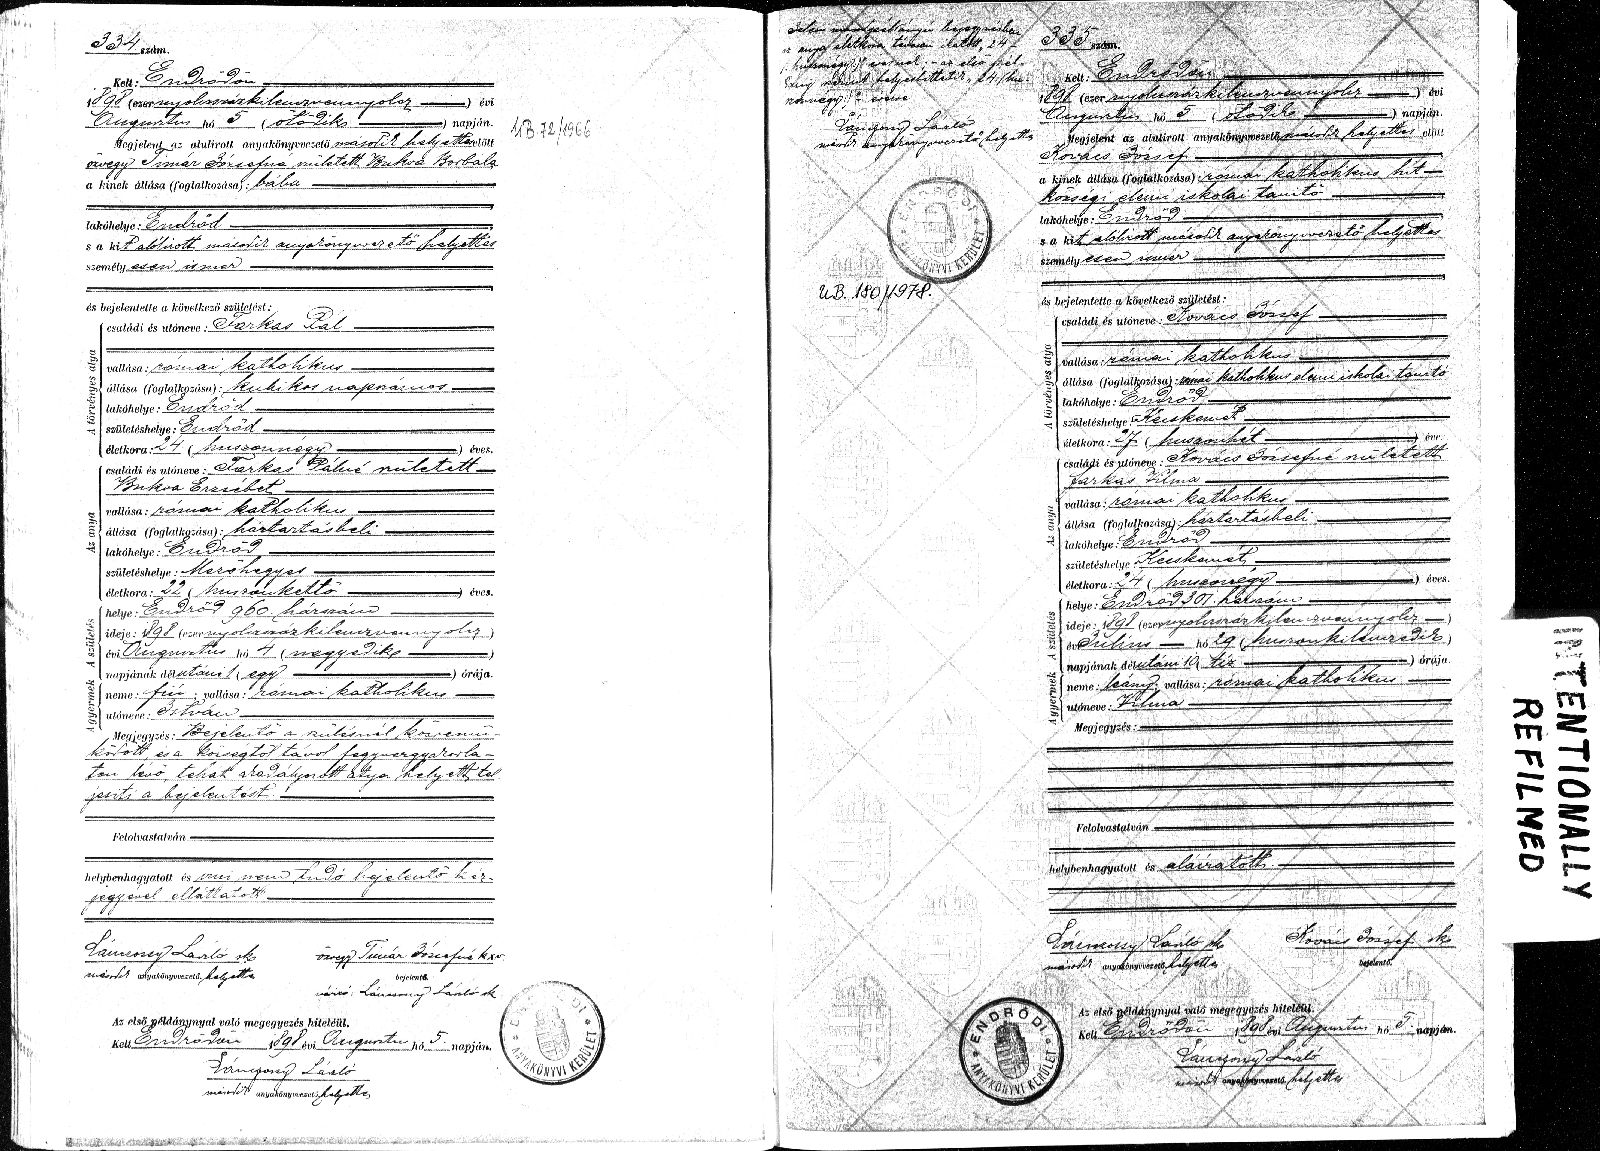 334 szám.
Kelt: Endrődön
1898 (ezernyolcszázkilencvennyolcz) évi
Augusztus hó 5 (ötödik) napján.
Megjelent az alulirott anyakönyvvezető második helyettes előtt
özvegy Timár Józsefné született Bukva Borbála
a kinek állása (foglalkozása): bába
lakóhelye: Endrőd
s a kit alólirott második anyakönyvvezető helyettes
személyesen ismer
és bejelentette a következő születést:
A törvényes atya
családi és utóneve: Farkas Pál
vallása: római katholikus
állása (foglalkozása): kubikos napszámos
lakóhelye: Endrőd
születéshelye: Endrőd
életkora: 24 (huszonnégy) éves.
Az anya
családi és utóneve: Farkas Pálné született
Bukva Erzsébet
vallása: római katholikus
állása (foglalkozása): háztartásbeli
lakóhelye: Endrőd
születéshelye: Mezőhegyes
életkora: 22 (huszonkettő) éves.
A gyermek A születés
helye: Endrőd 960. házszám
ideje: 1898 (ezernyolcszázkilencvennyolcz)
évi Augusztus hó 4 (negyedike)
napjának délutáni 1 (egy) órája.
neme: fiú; vallása: római katholikus
utóneve: István
Megjegyzés: Bejelentő a szülésnél közremü-
ködött és a községtől távol fegyvergyakorla-
ton lévő, tehát akadályozott atya helyett tel
jesíti a bejelentést.
Felolvastatván
helybenhagyatott és irni nem tudó bejelentő kéz-
jegyével elláttatott
Lánczosy László sk
második anyakönyvvezető helyettes
özvegy Timár Józsefné kxv
bejelentő.
Lánczosy László sk
Az első példánynyal való megegyezés hiteléül.
Kelt Endrődön 1898 évi Augusztus hó 5. napján.
Lánczosy László
második anyakönyvvezető helyettes
ENDRŐDI
ANYAKÖNYVI KERÜLET
UB 72/1966
az anya életkora 24
24 (hu-
szonnégy)
Lánczosy László
második anyakönyvvezető helyettes
ENDRŐDI
ANYAKÖNYVI KERÜLET
UB. 180/1978.
335 szám.
Kelt: Endrődön
1898 (ezernyolcszázkilencvennyolcz) évi
Augusztus hó 5 (ötödike) napján.
Megjelent az alulirott anyakönyvvezető második helyettes előtt
Kovács József
a kinek állása (foglalkozása): római katholikus hit-
községi elemi iskolai tanitó
lakóhelye: Endrőd
s a kit alólirott második anyakönyvvezető helyettes
személyesen ismer
és bejelentette a következő születést:
A törvényes atya
családi és utóneve: Kovács József
vallása: római katholikus
állása (foglalkozása): római katholikus elemi iskolai tanitó
lakóhelye: Endrőd
születéshelye: Kecskemét
életkora: 27 (huszonhét) éves.
Az anya
családi és utóneve: Kovács Józsefné született
Farkas Vilma
vallása: római katholikus
állása (foglalkozása): háztartásbeli
lakóhelye: Endrőd
születéshelye: Kecskemét
életkora: 24 (huszonnégy) éves.
A gyermek A születés
helye: Endrőd 301. házszám
ideje: 1898 (ezernyolcszázkilencvennyolcz)
évi Julius hó 29 (huszonkilencedike)
napjának délutáni 10 (tíz) órája.
neme: leány; vallása: római katholikus
utóneve: Vilma
Megjegyzés:
Felolvastatván
helybenhagyatott és aláiratott.
Lánczosy László sk
második anyakönyvvezető helyettes
Kovács József sk
bejelentő.
Az első példánynyal való megegyezés hiteléül.
Kelt Endrődön 1898 évi Augusztus hó 5. napján.
Lánczosy László
második anyakönyvvezető helyettes
ENDRŐDI
ANYAKÖNYVI KERÜLET
NTENTIONALLY
REFILMED